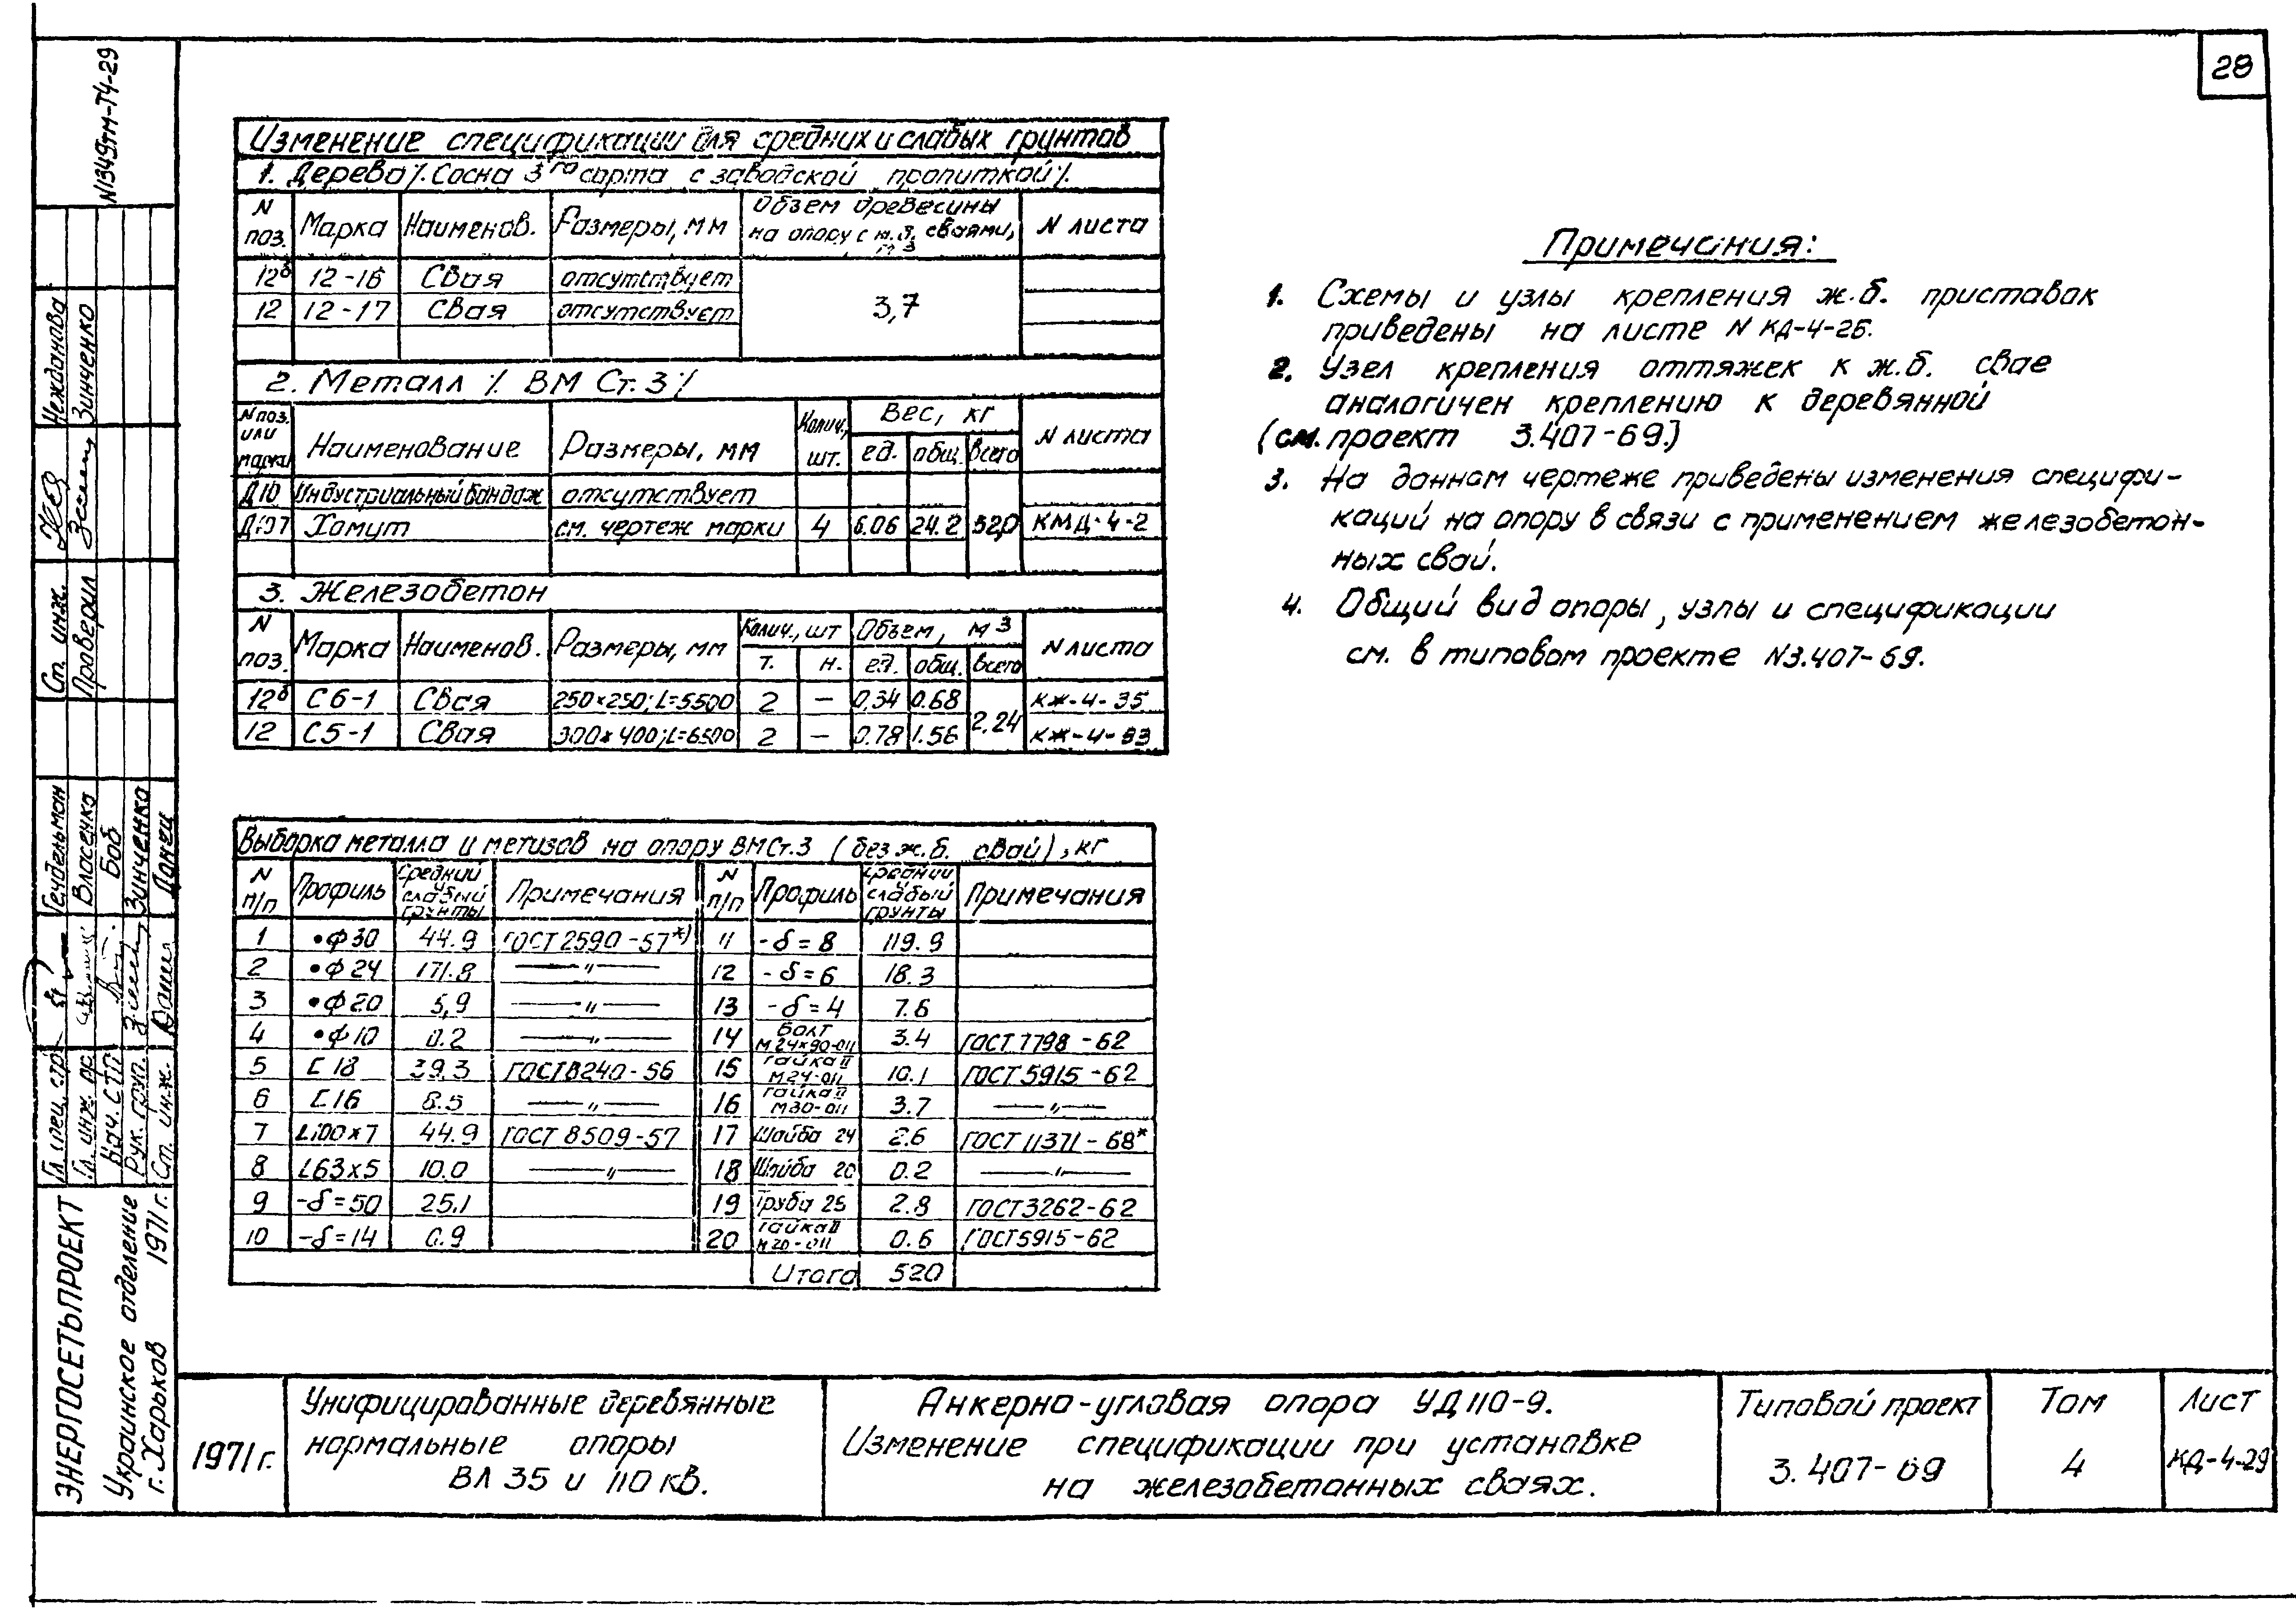 28
N1349тм-Т4-29
Изменение спецификации для средних и слабых грунтов
1. Дерево /. Сосна 3го сорта с заводской пропиткой /.
N поз. Марка Наименов. Размеры, мм Объем древесины на опору с ж.б. сваями, м3 N листа
12б 12-16 Свая отсутствует
12 12-17 Свая отсутствует
3,7
2. Металл /. ВМ Ст. 3 /
N поз. или марка Наименование Размеры, мм Колич., шт. Вес, кг ед. общ. всего N листа
Д10 Индустриальный бандаж отсутствует
Д107 Хомут см. чертеж марки 4 6.06 24.2 520 КМД-4-2
3. Железобетон
N поз. Марка Наименов. Размеры, мм Колич., шт т. н. Объем, м3 ед. общ. всего N листа
12б С6-1 Свая 250×250; L=5500 2 — 0,34 0.68 КЖ-4-35
2.24
12 С5-1 Свая 300×400; L=6500 2 — 0.78 1.56 КЖ-4-33
Выборка металла и метизов на опору ВМСт.3 (без ж.б. свай), кг
N п/п Профиль Средний и слабый грунты Примечания N п/п Профиль Средний и слабый грунты Примечания
1 •Ф30 44.9 ГОСТ 2590-57*) 11 -δ=8 119.9
2 •Ф24 171.8 —"— 12 -δ=6 18.3
3 •Ф20 5,9 —"— 13 -δ=4 7.6
4 •Ф10 0.2 —"— 14 Болт М24×90-011 3.4 ГОСТ 7798-62
5 [18 39.3 ГОСТ 8240-56 15 Гайка II М24-011 10.1 ГОСТ 5915-62
6 [16 8.5 —"— 16 Гайка II М30-011 3.7 —"—
7 L100×7 44.9 ГОСТ 8509-57 17 Шайба 24 2.6 ГОСТ 11371-68*
8 L63×5 10.0 —"— 18 Шайба 20 0.2 —"—
9 -δ=50 25.1 19 Труба 25 2.8 ГОСТ 3262-62
10 -δ=14 0.9 20 Гайка II М20-011 0.6 ГОСТ 5915-62
Итого 520
Примечания:
1. Схемы и узлы крепления ж.б. приставок
приведены на листе N КД-4-26.
2. Узел крепления оттяжек к ж.б. свае
аналогичен креплению к деревянной
(см. проект 3.407-69.)
3. На данном чертеже приведены изменения специфи-
каций на опору в связи с применением железобетон-
ных свай.
4. Общий вид опоры, узлы и спецификации
см. в типовом проекте N3.407-69.
Ст. инж. Нежданова
Проверил Зинченко
Гл. спец. стр. Гендельман
Гл. инж. пр. Власенко
Нач. СТП Боб
Рук. груп. Зинченко
Ст. инж. Донец
ЭНЕРГОСЕТЬПРОЕКТ
Украинское отделение
г. Харьков 1971 г.
1971 г.
Унифицированные деревянные
нормальные опоры
ВЛ 35 и 110 кВ.
Анкерно-угловая опора УД110-9.
Изменение спецификации при установке
на железобетонных сваях.
Типовой проект
3.407-69
Том
4
Лист
КД-4-29